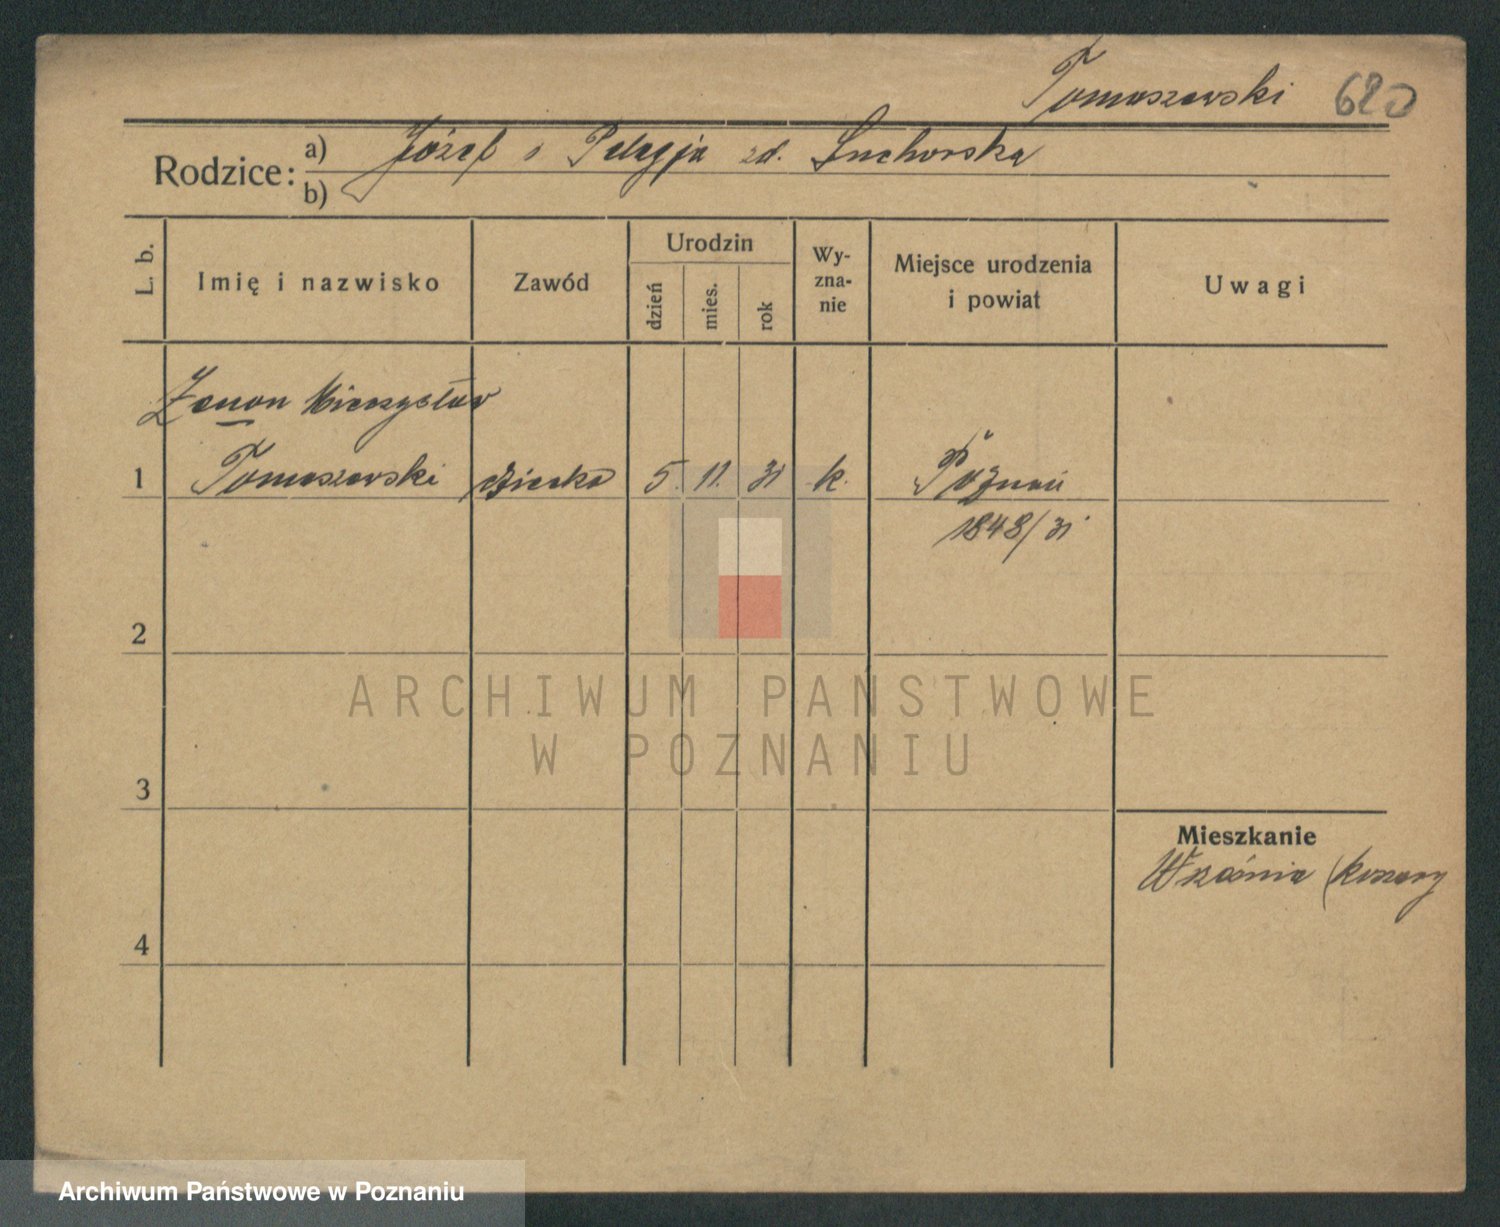 Tomaszewski 680
Rodzice: a) Józef i Pelagja zd. Suchorska
b)
L. b.
Imię i nazwisko
Zawód
Urodzin
dzień
mies.
rok
Wy-
zna-
nie
Miejsce urodzenia
i powiat
Uwagi
Zenon Mieczysław
1 Tomaszewski dziecko 5. 11. 31 k. Poznań
1848/31
2
3
4
Mieszkanie
Września (koszary
ARCHIWUM PAŃSTWOWE
W POZNANIU
Archiwum Państwowe w Poznaniu